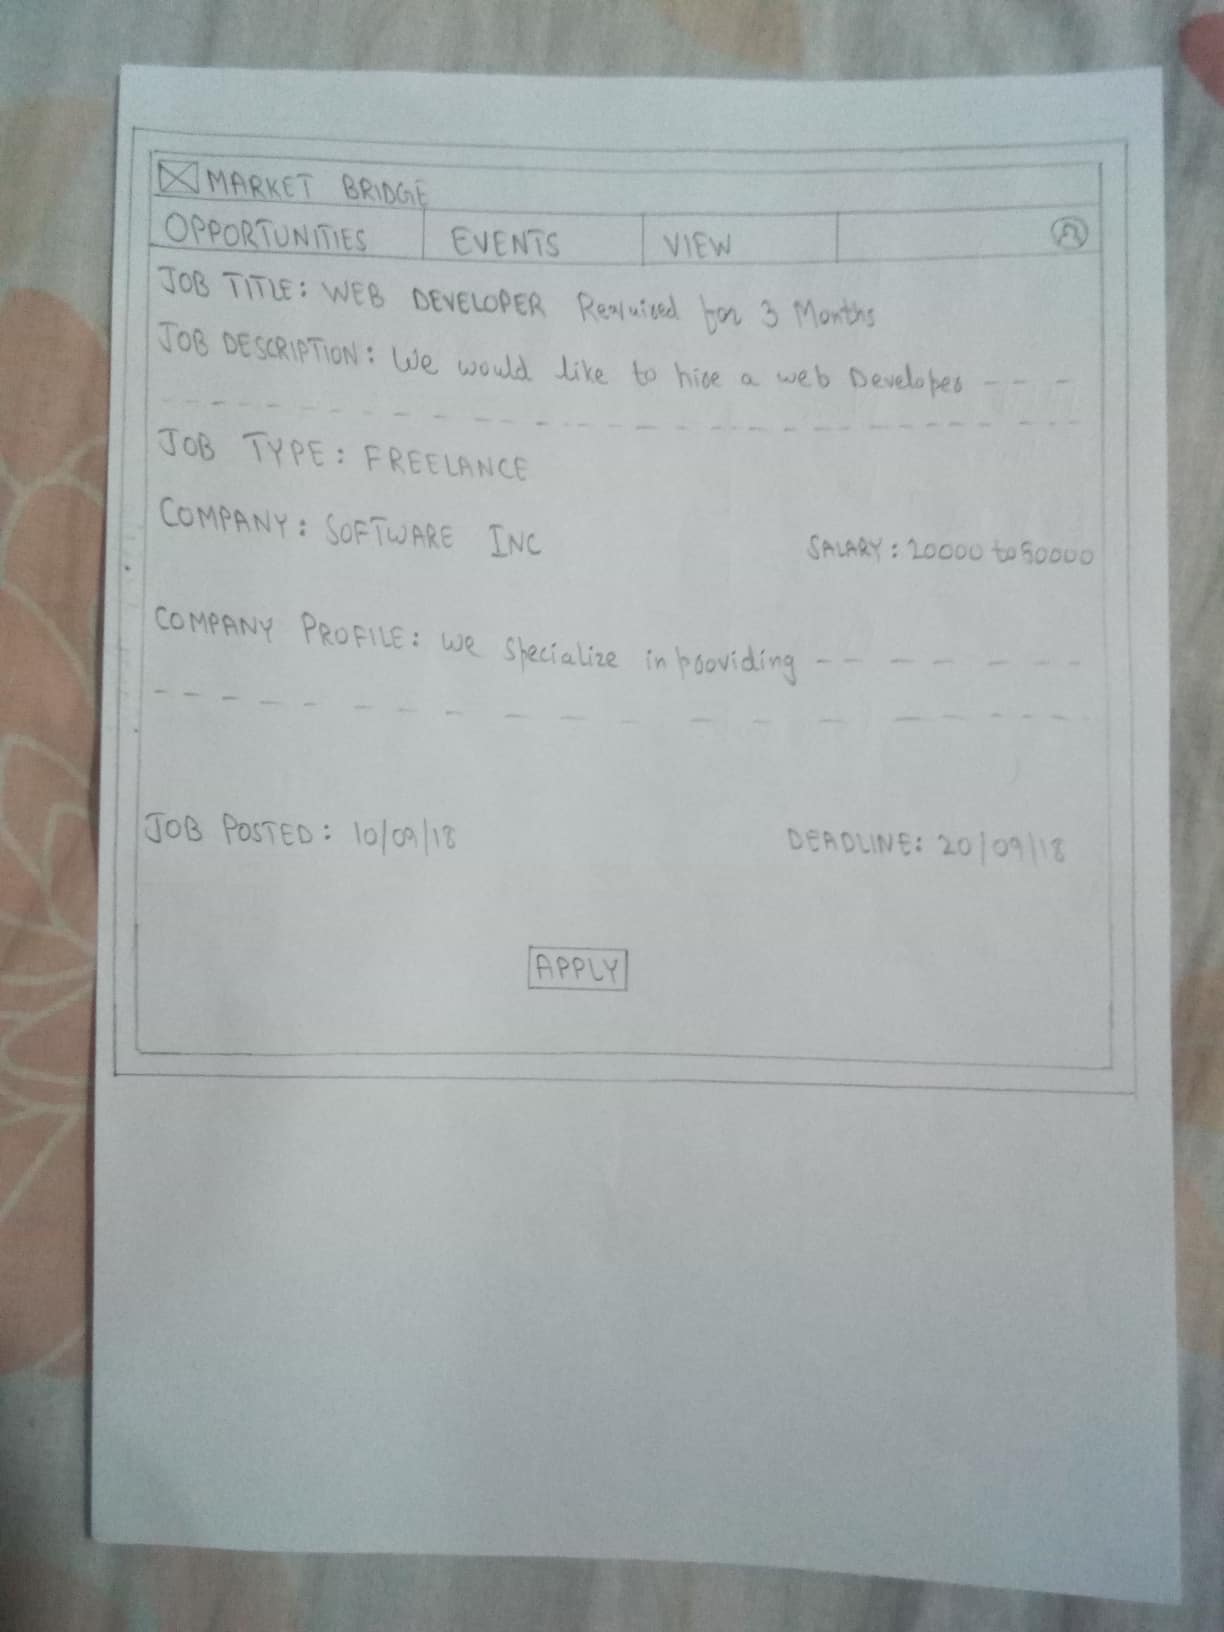 MARKET BRIDGE
OPPORTUNITIES EVENTS VIEW
JOB TITLE: WEB DEVELOPER Required for 3 Months
JOB DESCRIPTION: We would like to hire a web Developer
JOB TYPE: FREELANCE
COMPANY: SOFTWARE INC SALARY: 20000 to 50000
COMPANY PROFILE: We specialize in providing
JOB POSTED: 10/09/18 DEADLINE: 20/09/18
APPLY